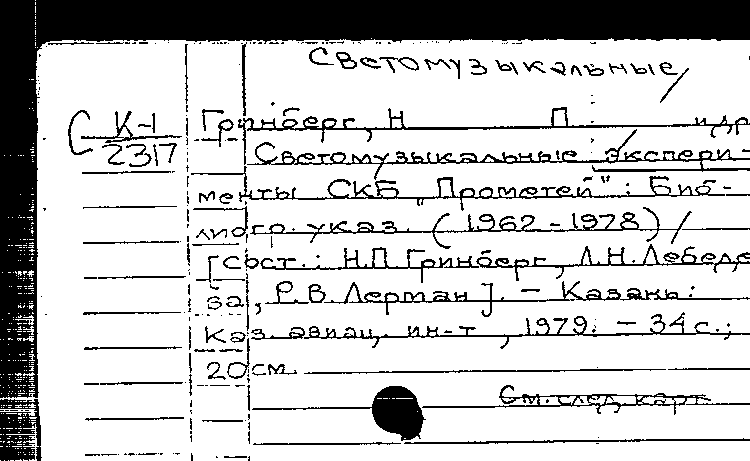 Светомузыкальные/
С К-1
2317
Гринберг, Н П и др
Светомузыкальные экспери-
менты СКБ „Прометей“: Биб-
лиогр. указ. (1962-1978) /
[сост.: Н.П. Гринберг, Л.Н. Лебеде
ва, Р.В. Лерман]. - Казань:
Каз. авиац. ин-т, 1979. - 34 с.;
20 см.
См. след. карт